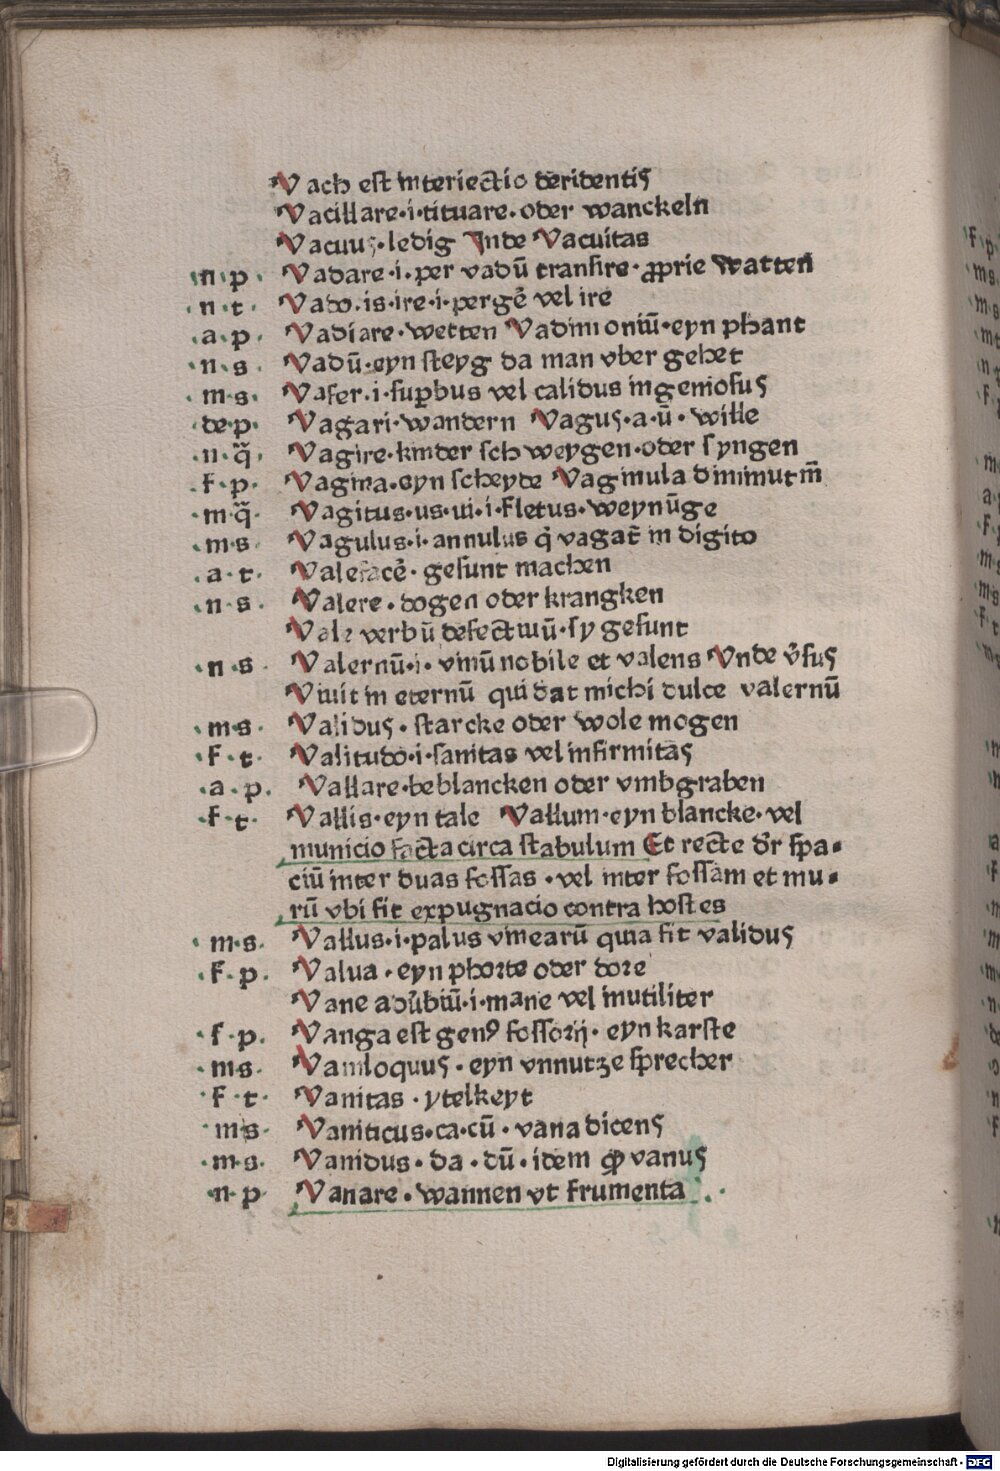 Vach est interiectio deridentis
Vacillare·i·tituare·oder wanckeln
Vacuus·ledig Inde Vacuitas
·n·p· Vadare·i·per vadū transire·ꝓprie watten
·n·t· Vado·is·ire·i·pergē vel ire
·a·p· Vadiare·wetten Vadimoniū·eyn phant
·n·s· Vadū·eyn steyg da man vber gehet
·m·s· Vafer·i·suꝑbus vel calidus ingeniosus
·de·p· Vagari·wandern Vagus·a·ū·wille
·n·q̄· Vagire·kinder schweygen·oder syngen
·f·p· Vagina·eyn scheyde Vaginula diminutiū
·m·q̄· Vagitus·us·ui·i·fletus·weynūge
·m·s· Vagulus·i·annulus q̄ vagat̄ in digito
·a·t· Valefacē·gesunt machen
·n·s· Valere·dogen oder krangken
Vale verbū defectiuū·sy gesunt
·n·s· Valernū·i·vinū nobile et valens Vnde v̄sus
Viuit in eternū qui dat michi dulce valernū
·m·s· Validus·starcke oder wole mogen
·f·t· Valitudo·i·sanitas vel infirmitas
·a·p· Vallare·beblancken oder vmbgraben
·f·t· Vallis·eyn tale Vallum·eyn blancke·vel
municio facta circa stabulum Et recte dr̄ spa-
ciū inter duas fossas·vel inter fossam et mu-
rū vbi fit expugnacio contra hostes
·m·s· Vallus·i·palus vinearū quia fit validus
·f·p· Valua·eyn phorte oder dore
Vane adūbiū·i·mane vel inutiliter
·f·p· Vanga est genꝰ fossorij·eyn karste
·m·s· Vaniloquus·eyn vnnutze sprecher
f·t· Vanitas·ytelkeyt
m·s· Vaniticus·ca·cū·vana dicens
·m·s· Vanidus·da·dū·idem ꝙ vanus
·n·p Vanare·wannen vt frumenta
Digitalisierung gefördert durch die Deutsche Forschungsgemeinschaft - DFG